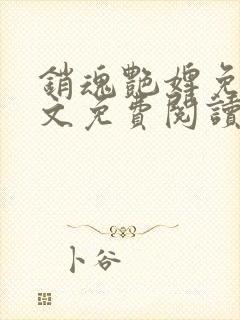 銷魂艷婢免
文免費閱讀
卜谷